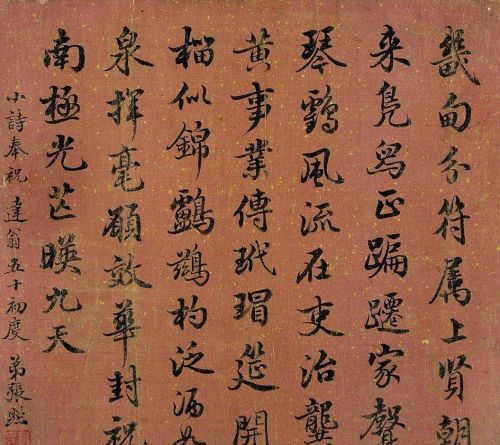 畿甸分符属上賢朝
来凫舄正蹁躚家聲
琴鶴風流在吏治龔
黄事業傳玳瑁筵開
榴似錦鸕鷀杓泛酒如
泉揮毫願效華封祝
南極光芒暎九天
小詩奉祝 達翁五十初度 弟張照